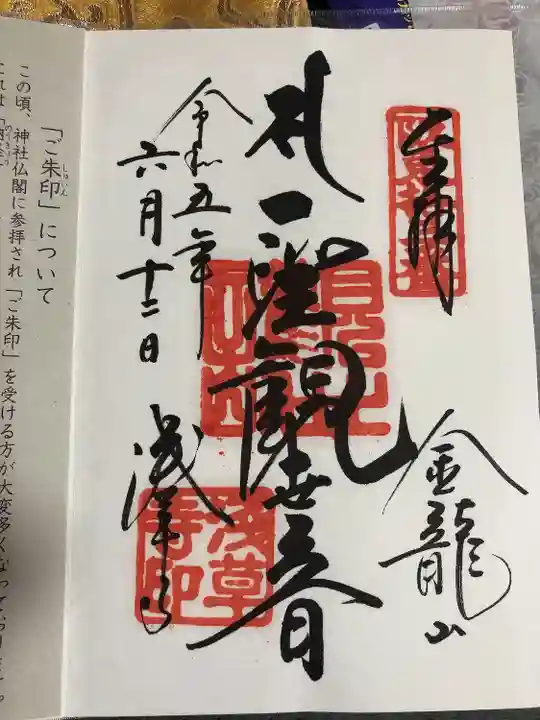 奉拝
金龍山
札一聖観世音
浅草寺印
令和五年
六月十二日
浅草寺
「ご朱印」について
しゅいん
この頃、神社仏閣に参拝され「ご朱印」を受ける方が大変多くなっており
これは「納経